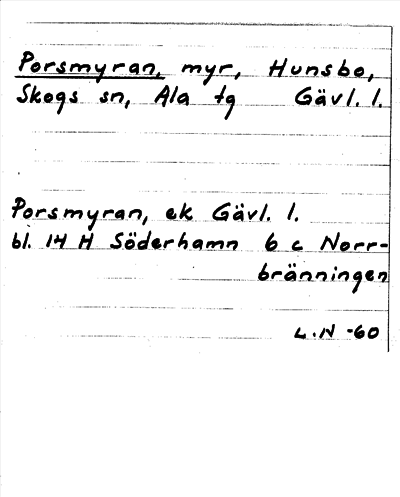 Porsmyran, myr, Hunsbo,
Skogs sn, Ala tg Gävl. l.
Porsmyran, ek Gävl. l.
bl. 14 H Söderhamn 6 c Norr-
bränningen
L.N -60